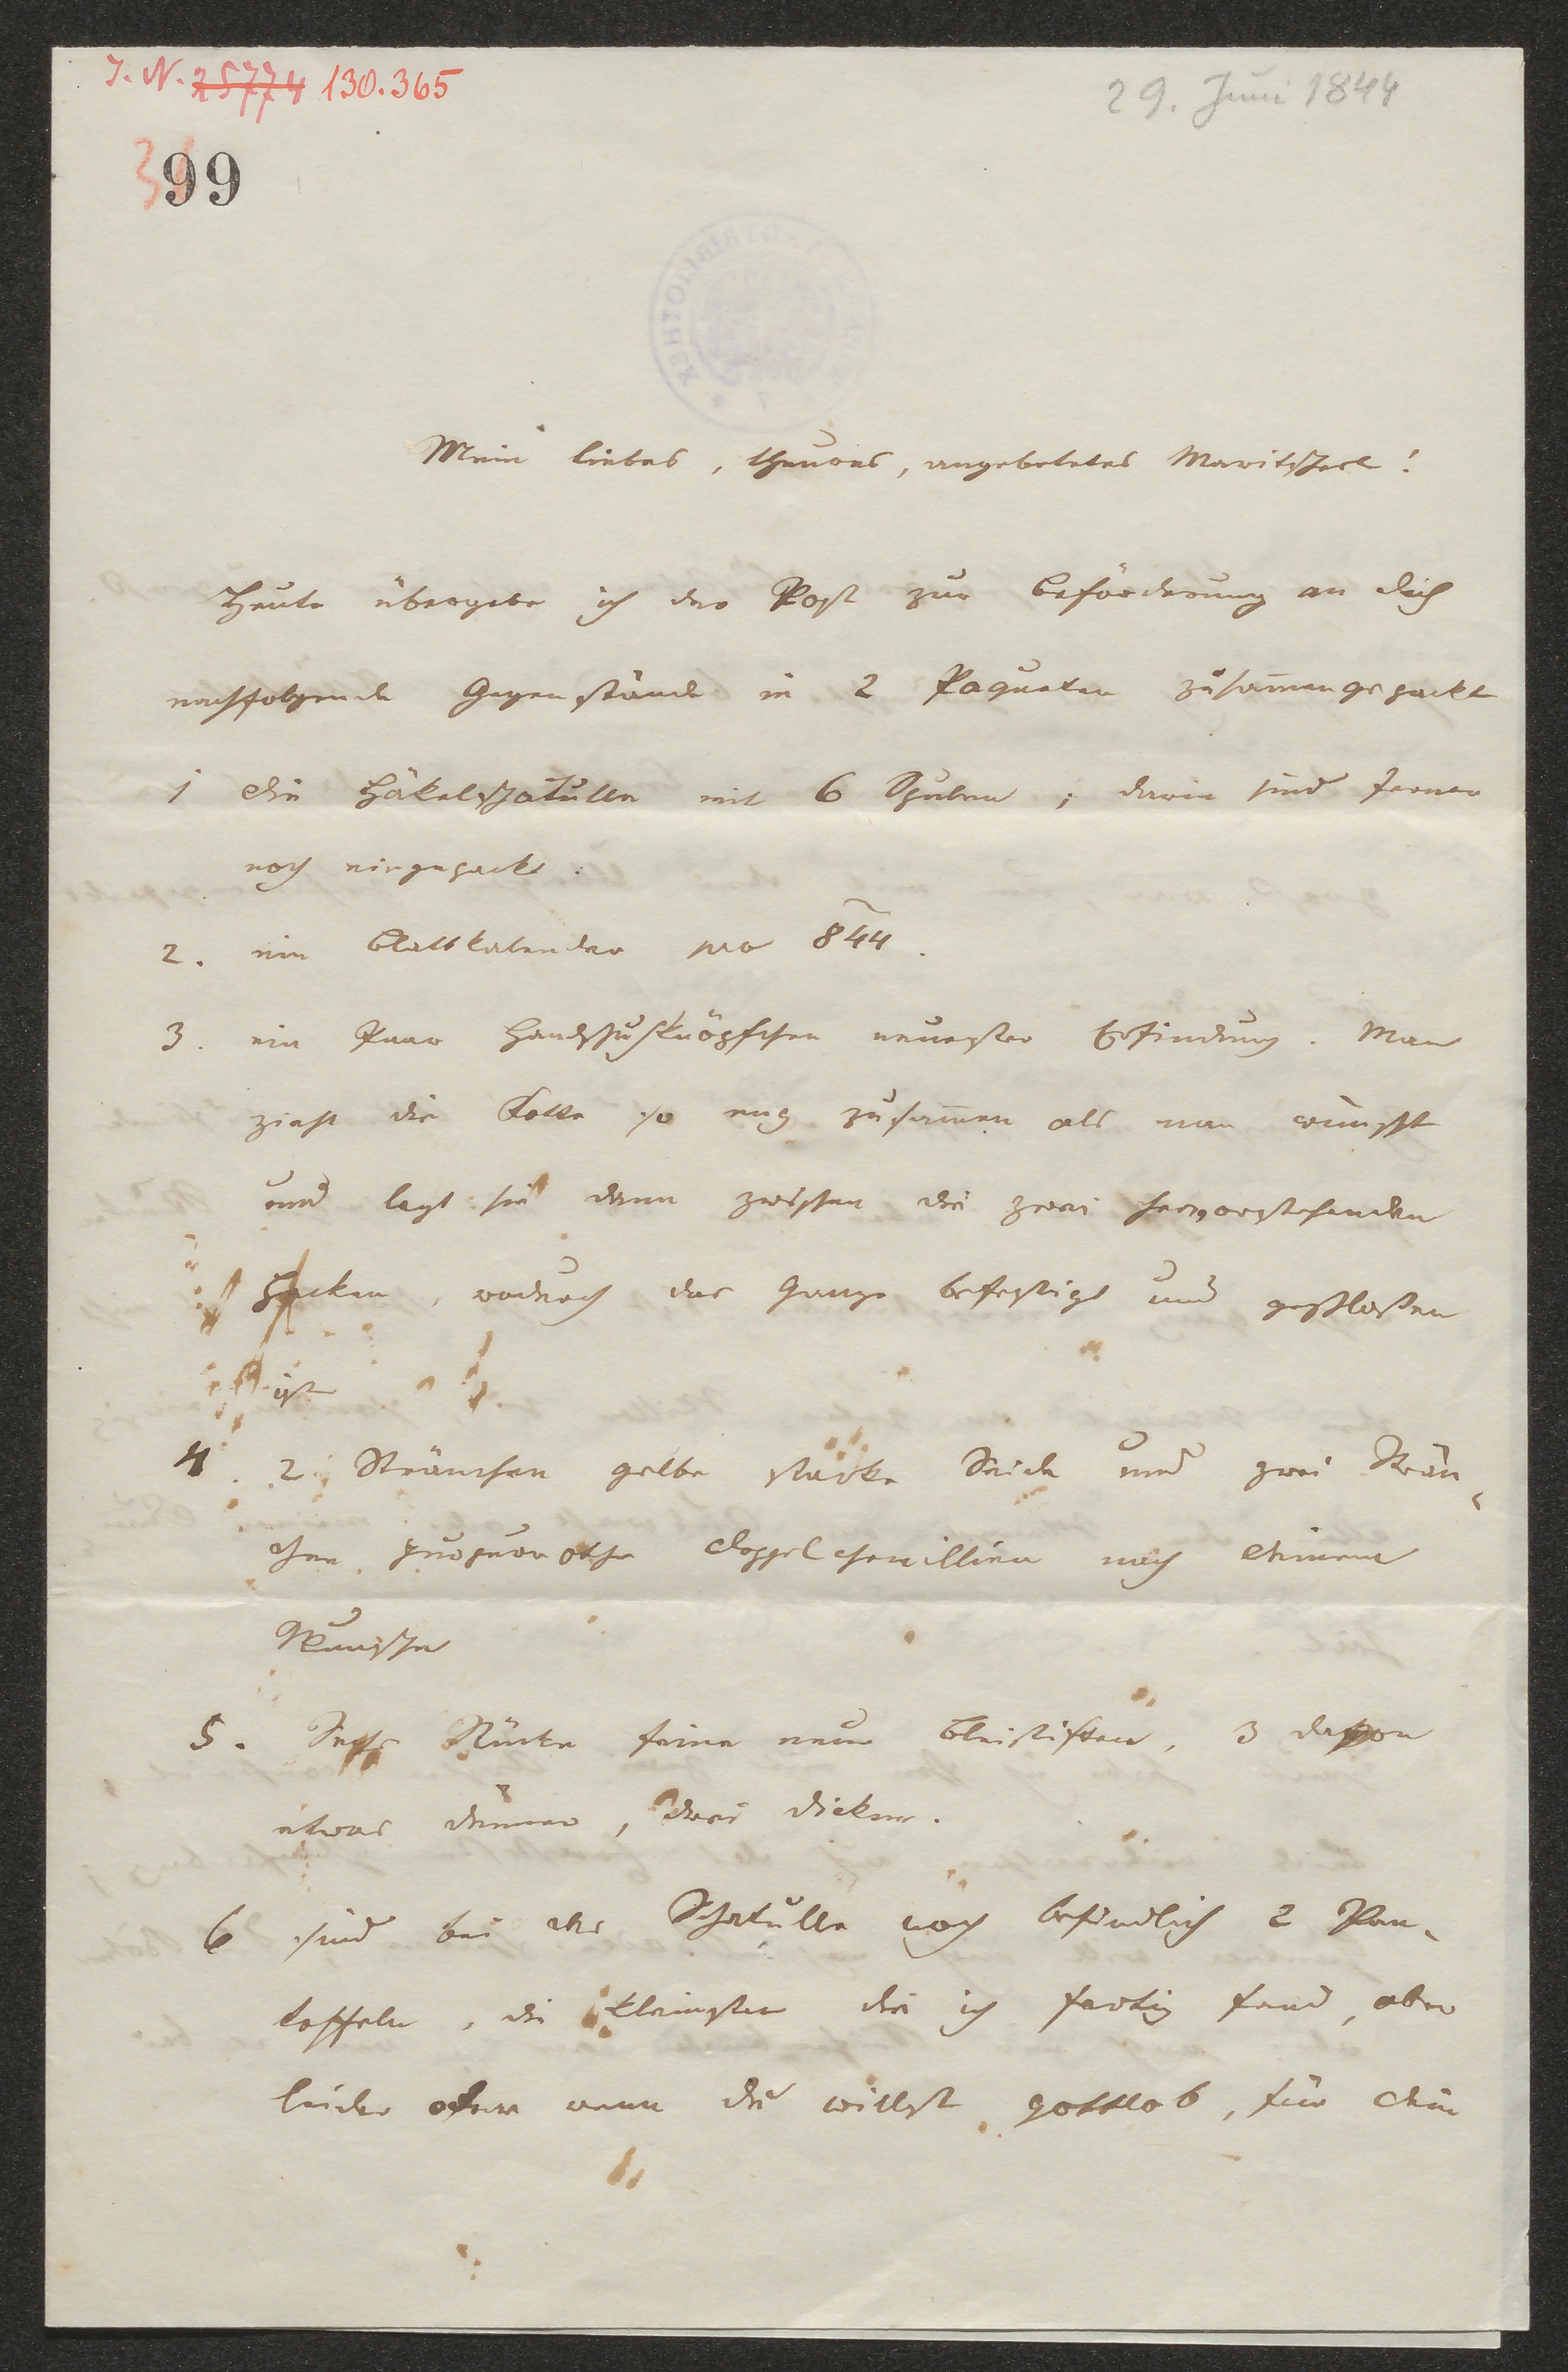 J. N. 25774 130.365
29. Juni 1844
399
Mein liebes, theures, angebetetes Maritscherl!
Heute übergebe ich der Post zur Beförderung an Dich
nachfolgende Gegenstände in 2 Paqueten zusam̅engepackt
1 Die Häkelschatulle mit 6 Spulen; darin sind ferner
noch eingepackt:
2. ein Blattkalender pro 844.
3. ein Paar Handschuhknöpfchen neuester Erfindung. Man
zieht die Kette so eng zusam̅en als man wünscht
und legt sie dann zwischen die zwei hervorstehenden
Hacken, wodurch das Ganze befestigt und geschlossen
ist
4. 2 Strängchen gelbe starke Seide und zwei Strän-
chen purpurrothe Doppelchenillien nach Deinem
Wunsche
5. Sechs Stücke feine neue Bleistiften, 3 davon
etwas dünner, drei dicker.
6 sind bei der Schatulle noch befindlich 2 Pan-
toffeln, die kleinsten die ich fertig fand, aber
leider oder wenn du willst gottlob, für Dein